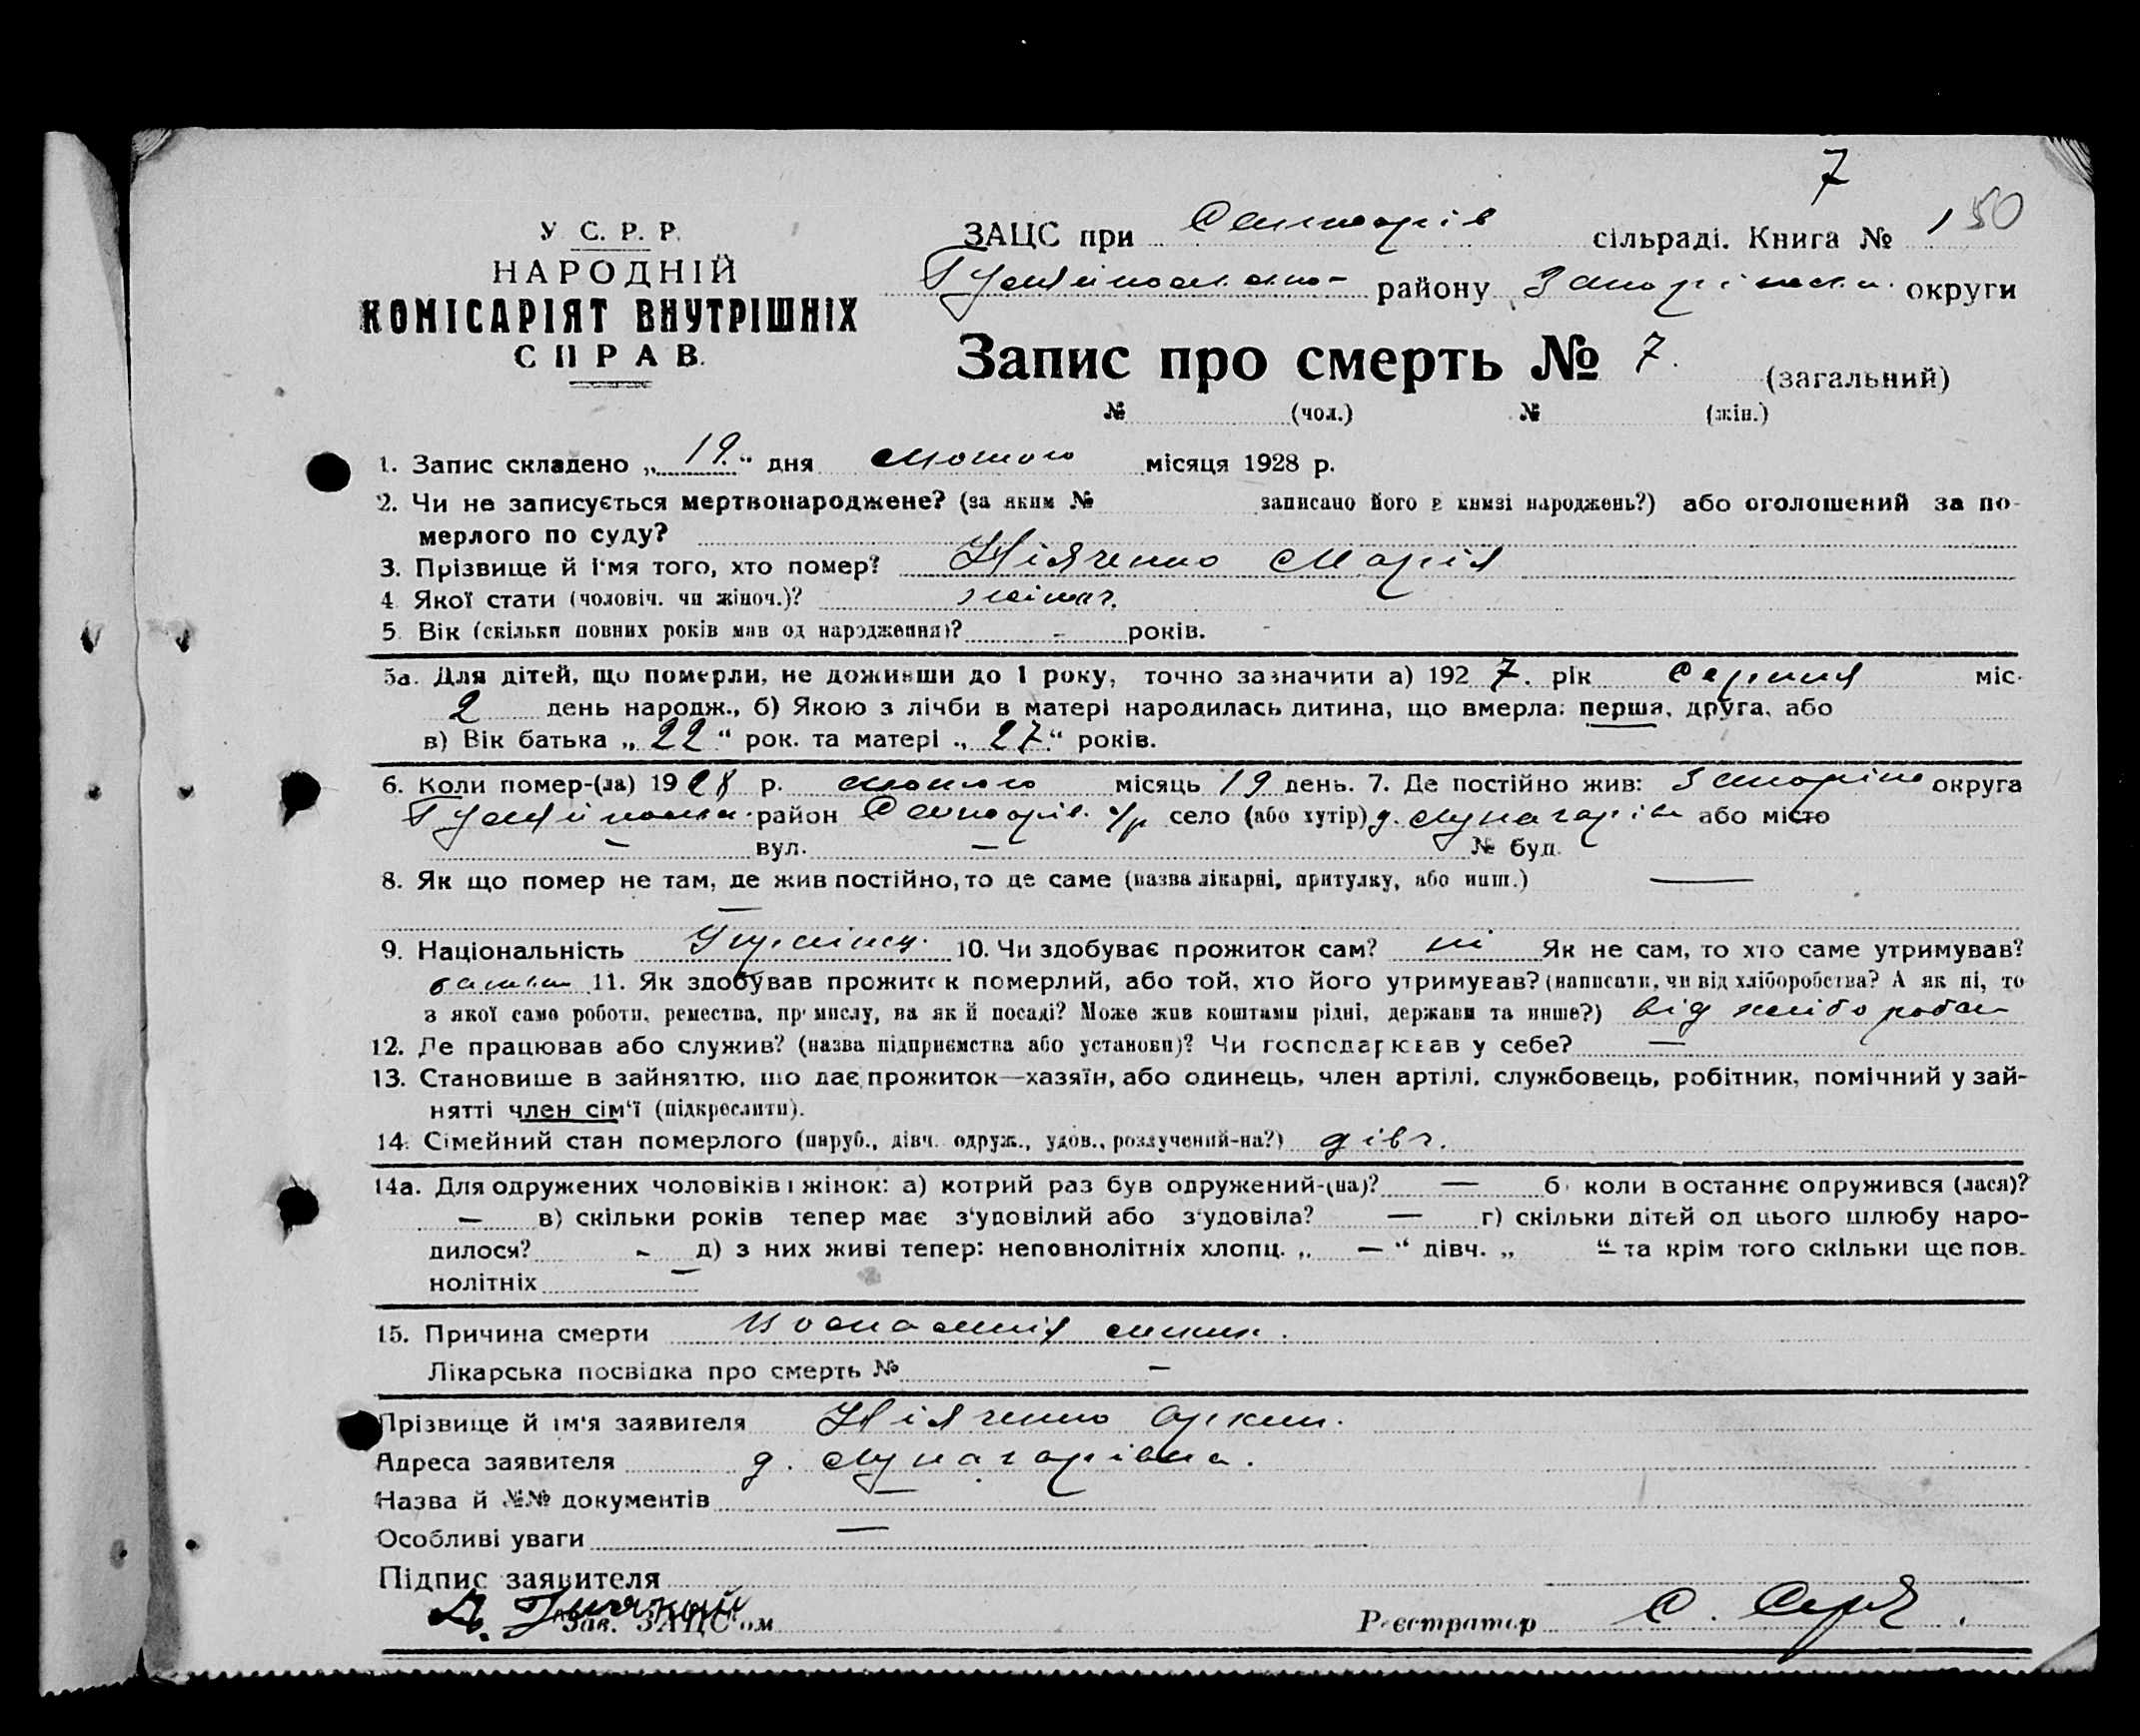 7
У. С. Р. Р.
НАРОДНІЙ
КОМІСАРІЯТ ВНУТРІШНІХ
СПРАВ.
ЗАЦС при сільраді. Книга № 1 50
району округи
Запис про смерть № 7. (загальний)
№ (чол.) № (жін.)
1. Запис складено „ 19. “ дня лютого місяця 1928 р.
2. Чи не записується мертвонароджене? (за яким № записано його в книзі народжень?) або оголошений за по-
мерлого по суду?
3. Прізвище й ім'я того, хто помер? Марія
4. Якої стати (чоловіч. чи жіноч.)? жіноч.
5. Вік (скільки повних років мав од народження)? - років.
5а. Для дітей, що померли, не доживши до 1 року, точно зазначити а) 192 7. рік Серпня міс.
2 день народж., б) Якою з лічби в матері народилась дитина, що вмерла: перша, друга, або
в) Вік батька „ 22 “ рок. та матері „ 27 “ років.
6. Коли помер-(ла) 19 28 р. лютого місяць 19 день. 7. Де постійно жив: Запоріж округа
район с/р село (або хутір) або місто
— вул. — № буд.
8. Як що помер не там, де жив постійно, то де саме (назва лікарні, притулку, або инш.) —
—
9. Національність 10. Чи здобуває прожиток сам? ні Як не сам, то хто саме утримував?
батьки 11. Як здобував прожиток померлий, або той, хто його утримував? (написати, чи від хліборобства? А як ні, то
з якої само роботи, ремества, промислу, на якій посаді? Може жив коштами рідні, держави та инше?) від хлібороб
12. Де працював або служив? (назва підприємства або установи)? Чи господарював у себе? —
13. Становище в зайняттю, що дає прожиток—хазяїн, або одинець, член артілі, службовець, робітник, помічний у зай-
нятті член сім'ї (підкреслити).
14. Сімейний стан померлого (паруб., дівч. одруж., удов., розлучений-на?) дівч.
14а. Для одружених чоловіків і жінок: а) котрий раз був одружений-(на)? — б) коли востаннє одружився (лася)?
— в) скільки років тепер має з'удовілий або з'удовіла? — г) скільки дітей од цього шлюбу наро-
дилося? - д) з них живі тепер: неповнолітніх хлопц. „ — “ дівч. „ — “ та крім того скільки ще пов-
нолітніх —
15. Причина смерти
Лікарська посвідка про смерть № —
Прізвище й ім'я заявителя
Адреса заявителя
Назва й №№ документів —
Особливі уваги —
Підпис заявителя
Зав. ЗАЦС'ом Реєстратор